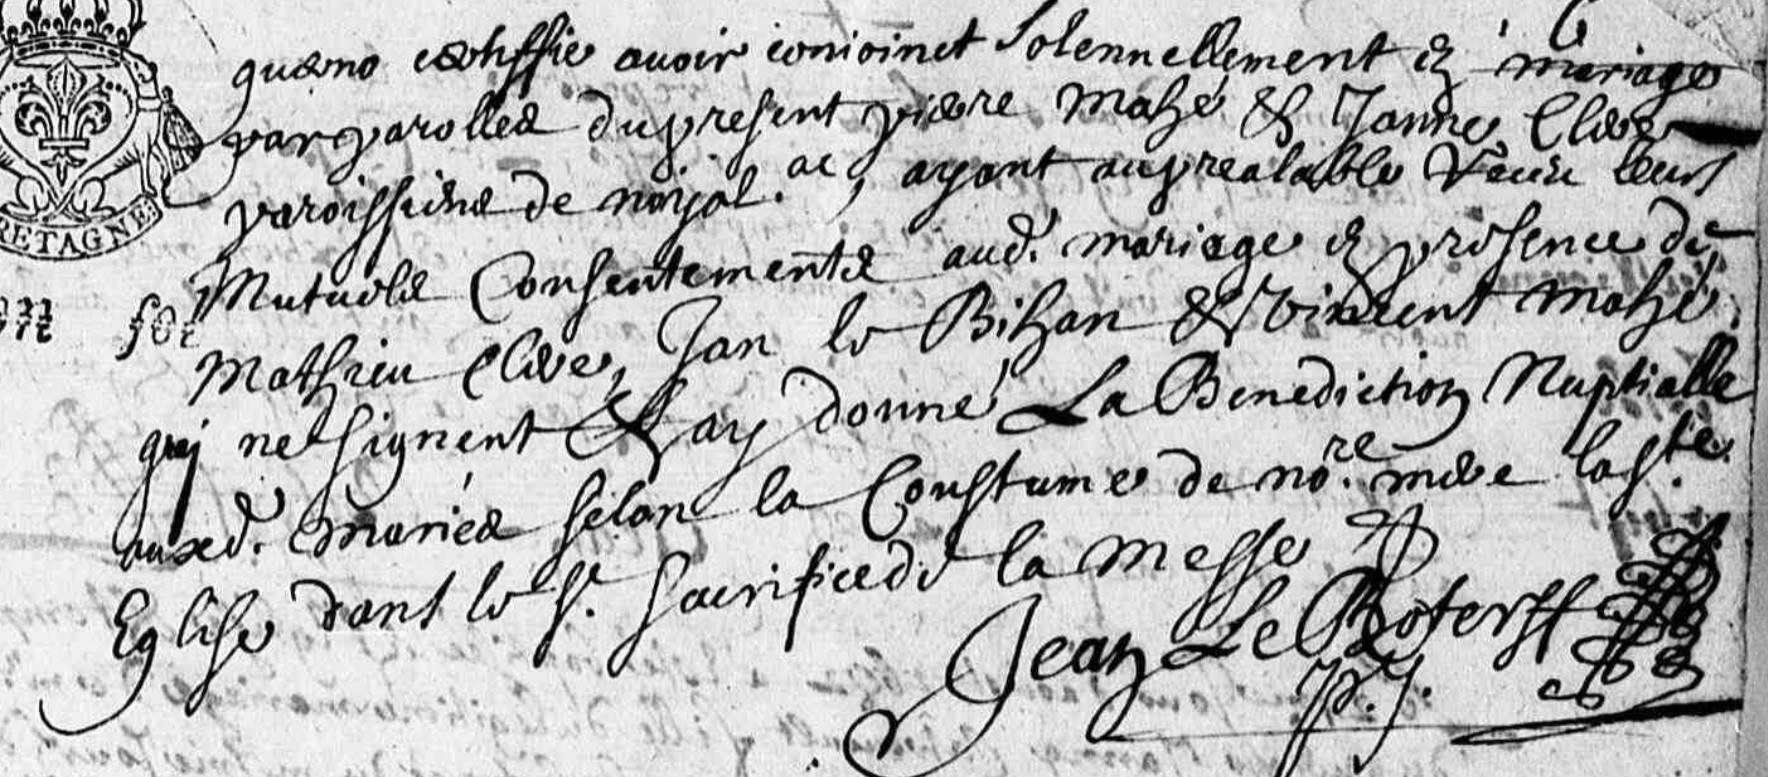 certiffie avoir conioinct Solennellement en mariage
par parolles du present pierre Mahé & Janne
paroissiens de noyal. ac, ayant au prealable leurs
BRETAGNE
Mutuels Consentements aud. mariage en presence de
Mathieu Jan le Bihan & Vincent Mahé
qui ne signent & ay donné La Benediction Nuptialle
auxd. mariés selon la Coustume de nore. mere la ste.
Eglise dans le st. sacrifice de la Messe
Jean Le